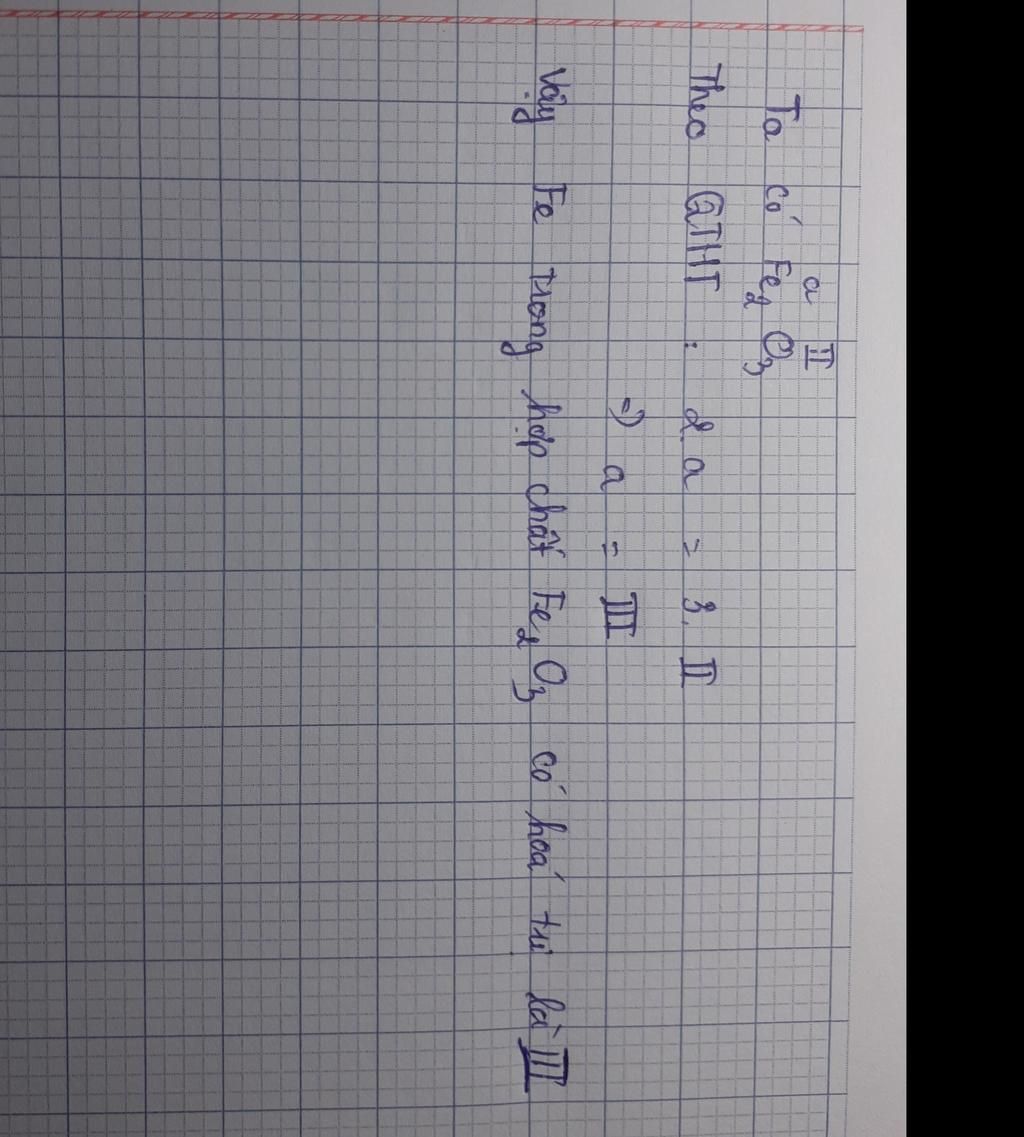 a II
Ta có Fe₂ O₃
Theo QTHT : 2.a = 3.II
=) a = III
Vậy Fe trong hợp chất Fe₂O₃ có hoá trị là III